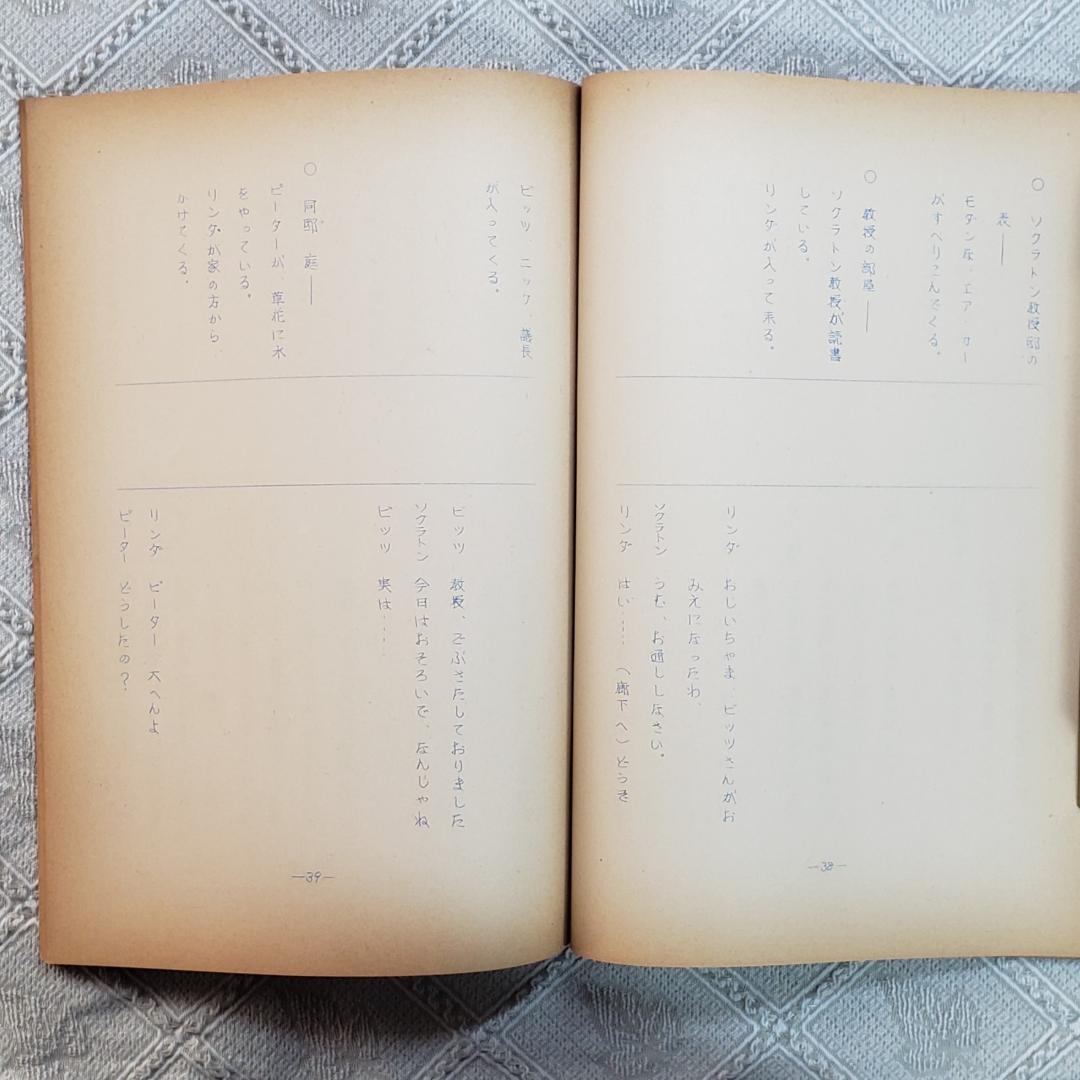 ○ ソクラトン教授邸の
表――
モダンな、エア カー
がすべりこんでくる。
○ 教授の部屋――
ソクラトン教授が読書
している。
リンダが入って来る。
リンダ おじいちゃま、ビッツさんがお
みえになったわ、
ソクラトン うむ、お通ししなさい。
リンダ はい…… (廊下へ)どうぞ
―38―
ビッツ、ニック、議長
が入ってくる。
ビッツ 教授、ごぶさたしておりました
ソクラトン 今日はおそろいで、なんじゃね
ビッツ 実は……
○ 同邸 庭――
ピーターが、草花に水
をやっている。
リンダが家の方から
かけてくる。
リンダ ピーター、大へんよ
ピーター どうしたの?
―39―